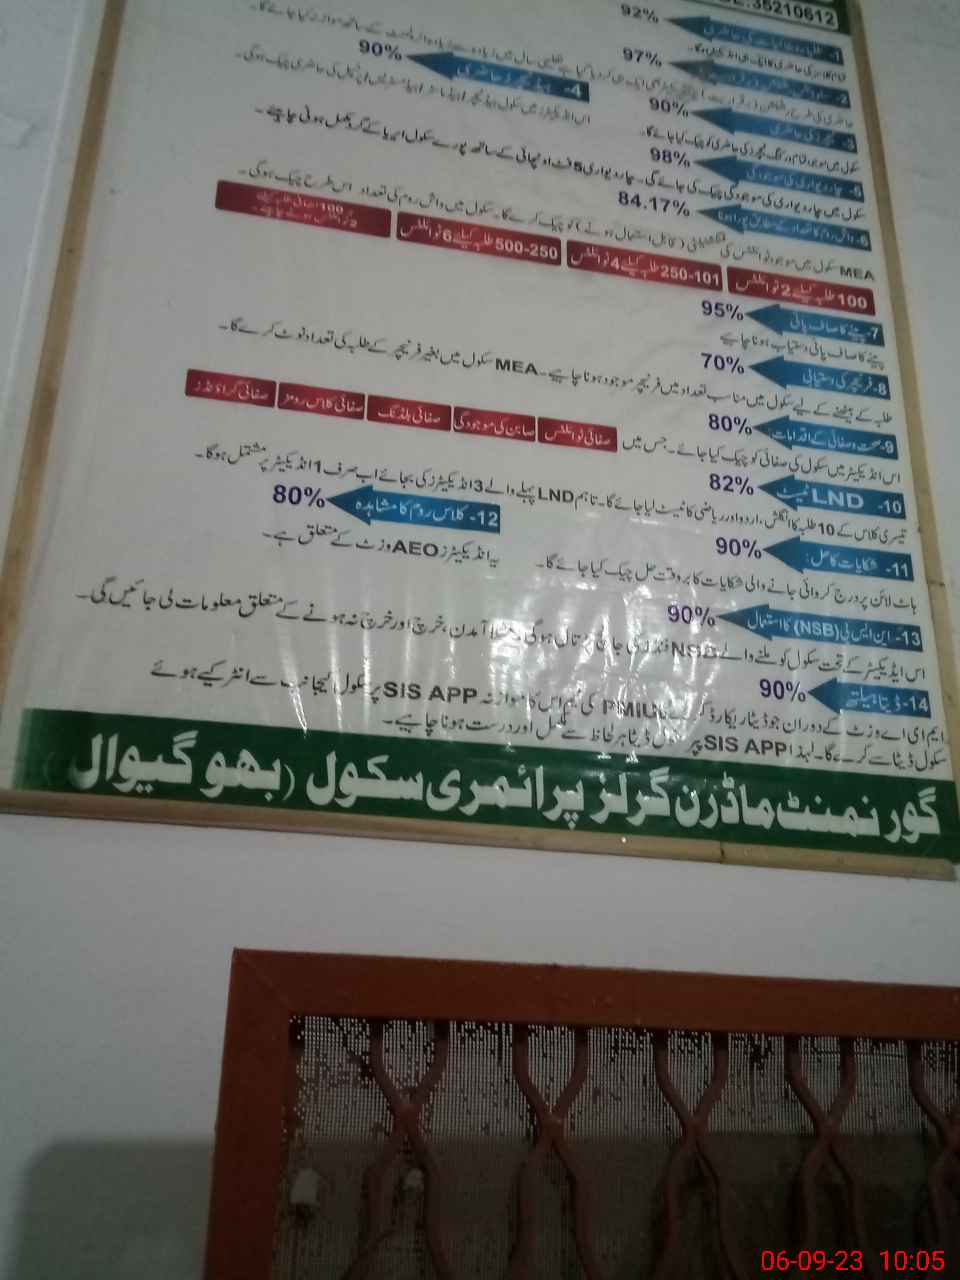 :35210612
1- طلباء و طالبات کی حاضری 92%
97%
4- ہیڈ ٹیچرز حاضری 90%
3- ٹیچرز کی حاضری 90%
سکول میں موجود تمام ورکنگ ٹیچرز کی حاضری کو چیک کیا جائے گا۔
5- چار دیواری کی موجودگی 98%
سکول میں چار دیواری کی موجودگی چیک کی جائے گی۔ چار دیواری 5 فٹ اونچائی کے ساتھ پورے سکول ایریا کے گرد مکمل ہونی چاہیئے۔
6- واش روم کا تعداد کے مطابق پورا ہونا 84.17%
MEA سکول میں موجود ٹوائلٹس کی فنکشنیلٹی (قابل استعمال ہونے) کو چیک کرے گا۔ سکول میں واش روم کی تعداد اس طرح چیک ہوگی۔
100 طلبہ کیلئے 2 ٹوائلٹس
101-250 طلبہ کیلئے 4 ٹوائلٹس
250-500 طلبہ کیلئے 6 ٹوائلٹس
7- پینے کا صاف پانی 95%
پینے کا صاف پانی دستیاب ہونا چاہیے
8- فرنیچر کی دستیابی 70%
طلبہ کے بیٹھنے کے لیے سکول میں مناسب تعداد میں فرنیچر موجود ہونا چاہیے۔ MEA سکول میں بغیر فرنیچر کے طلبہ کی تعداد نوٹ کرے گا۔
9- صحت و صفائی کے اقدامات 80%
اس انڈیکیٹر میں سکول کی صفائی کو چیک کیا جائے۔ جس میں صفائی ٹوائلٹس صابن کی موجودگی صفائی بلڈنگ صفائی کلاس رومز صفائی گراؤنڈز
10- LND ٹیسٹ 82%
تیسری کلاس کے 10 طلبہ کا انگلش، اردو اور ریاضی کا ٹیسٹ لیا جائے گا۔ تاہم LND پہلے والے 3 انڈیکیٹرز کی بجائے اب صرف 1 انڈیکیٹر پر مشتمل ہوگا۔
12- کلاس روم کا مشاہدہ 80%
یہ انڈیکیٹرز AEO وزٹ کے متعلق ہے۔
11- شکایات کا حل: 90%
ہاٹ لائن پر درج کروائی جانے والی شکایات کا بروقت حل چیک کیا جائے گا۔
13- این ایس بی (NSB) کا استعمال 90%
اس انڈیکیٹر کے تحت سکول کو ملنے والے NSB فنڈز کی جانچ پڑتال ہوگی، مثلاً آمدن، خرچ اور خرچ نہ ہونے کے متعلق معلومات لی جائیں گی۔
14- ڈیٹا ہیلتھ 90%
ایم ای اے وزٹ کے دوران جو ڈیٹا ریکارڈ کرے PMIU کی ٹیم اس کا موازنہ SIS APP پر سکول کیجانب سے انٹر کیے ہوئے
سکول ڈیٹا سے کرے گا۔ لہذا SIS APP پر سکول ڈیٹا ہر لحاظ سے مکمل اور درست ہونا چاہیے۔
گورنمنٹ ماڈرن گرلز پرائمری سکول (بھوگیوال
06-09-23 10:05